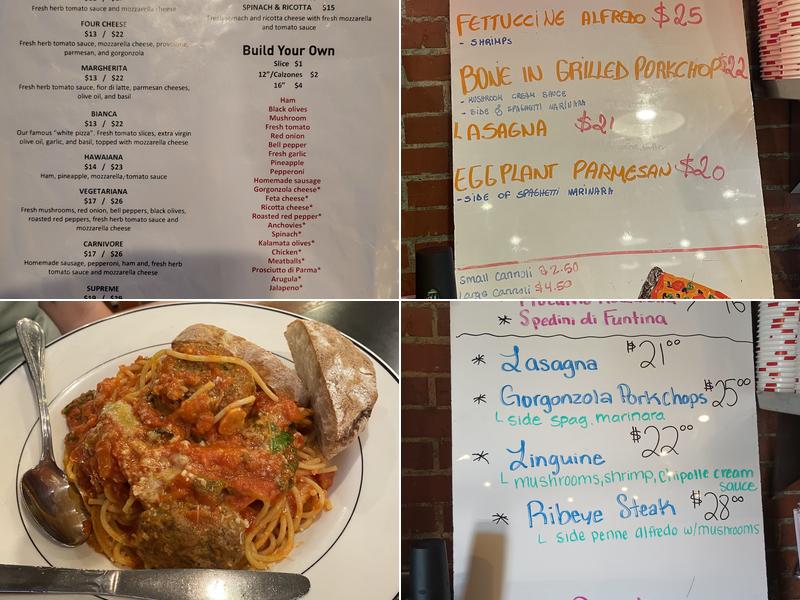 Fresh herb tomato sauce and mozzarella cheese
FOUR CHEESE
$13 / $22
Fresh herb tomato sauce, mozzarella cheese, provolone,
parmesan, and gorgonzola
MARGHERITA
$13 / $22
Fresh herb tomato sauce, fior di latte, parmesan cheeses,
olive oil, and basil
BIANCA
$13 / $22
Our famous "white pizza". Fresh tomato slices, extra virgin
olive oil, garlic, and basil, topped with mozzarella cheese
HAWAIANA
$14 / $23
Ham, pineapple, mozzarella, tomato sauce
VEGETARIANA
$17 / $26
Fresh mushrooms, red onion, bell peppers, black olives,
roasted red peppers, fresh herb tomato sauce and
mozzarella cheese
CARNIVORE
$17 / $26
Homemade sausage, pepperoni, ham and, fresh herb
tomato sauce and mozzarella cheese
SUPREME
$19 / $29
SPINACH & RICOTTA $15
Fresh spinach and ricotta cheese with fresh mozzarella
and tomato sauce
Build Your Own
Slice $1
12"/Calzones $2
16" $4
Ham
Black olives
Mushroom
Fresh tomato
Red onion
Bell pepper
Fresh garlic
Pineapple
Pepperoni
Homemade sausage
Gorgonzola cheese*
Feta cheese*
Ricotta cheese*
Roasted red pepper*
Anchovies*
Spinach*
Kalamata olives*
Chicken*
Meatballs*
Prosciutto di Parma*
Arugula*
Jalapeno*
FETTUCCINE ALFREDO $25
- SHRIMPS
BONE IN GRILLED PORKCHOP $22
- MUSHROOM CREAM SAUCE
- SIDE OF SPAGHETTI MARINARA
LASAGNA $21
EGGPLANT PARMESAN $20
- SIDE OF SPAGHETTI MARINARA
Small Cannoli $2.50
Large Cannoli $4.50
* Spedini di Funtina
* Lasagna $21.00
* Gorgonzola Porkchops $25.00
L side spag. marinara
* Linguine $22.00
L mushrooms, shrimp, chipotle cream
sauce
* Ribeye Steak $28.00
L side penne alfredo w/mushrooms